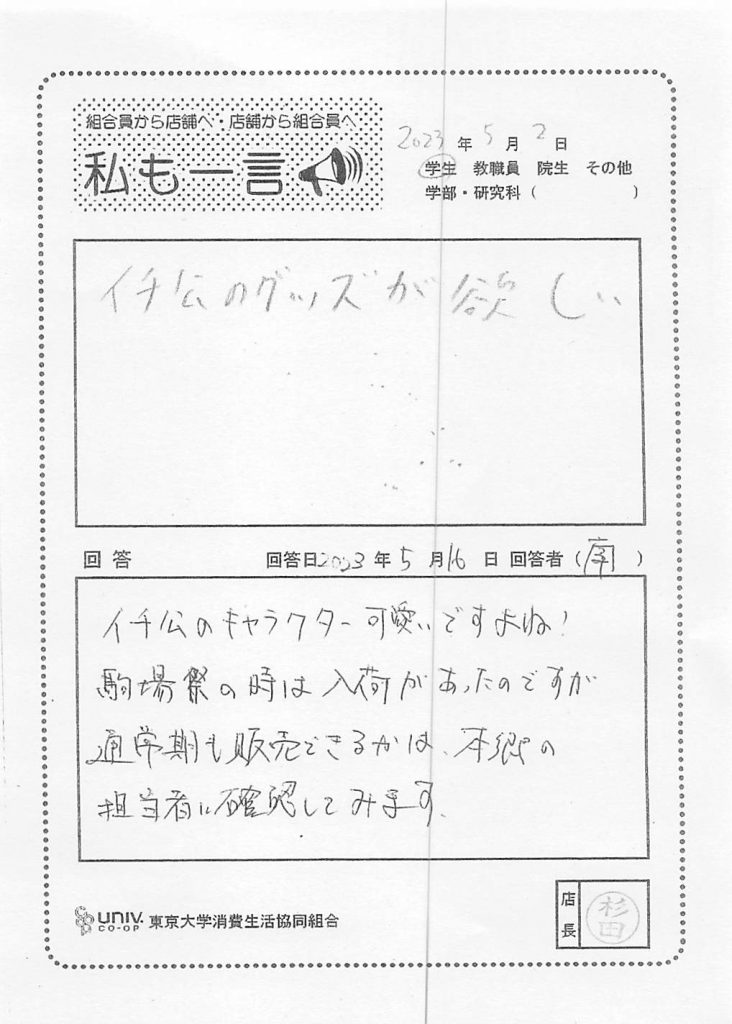 組合員から店舗へ・店舗から組合員へ
私も一言
2023年5月2日
学生 教職員 院生 その他
学部・研究科( )
イチ公のグッズが欲しい
回答 回答日2023年5月16日 回答者( )
イチ公のキャラクター可愛いですよね!
駒場祭の時は入荷があったのですが
通常期も販売できるかは、本郷の
担当者に確認してみます。
UNIV. CO-OP 東京大学消費生活協同組合
店長 杉田